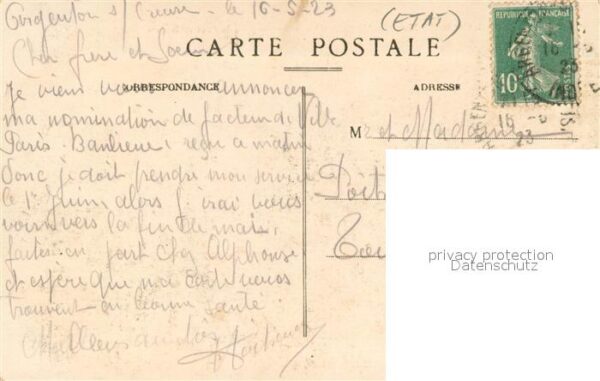 Argenton s/ Creuse le 16-5-23
(ETAT)
Cher frere et Soeur
CARTE POSTALE
CORRESPONDANCE
ADRESSE
REPUBLIQUE FRANÇAISE
10
16 -5
23
Je viens vous annoncer
ma nomination de facteur de Ville
Paris Banlieue reçue ce matin
donc je doit prendre mon service
le 1er Juin, alors j irai vous
voir vers la fin de mai,
faites en part chez Alphonse
et espère que ma carte vous
trouvent en bonne santé
Meilleurs amitiés
Mr et Madame
Poit
privacy protection
Datenschutz